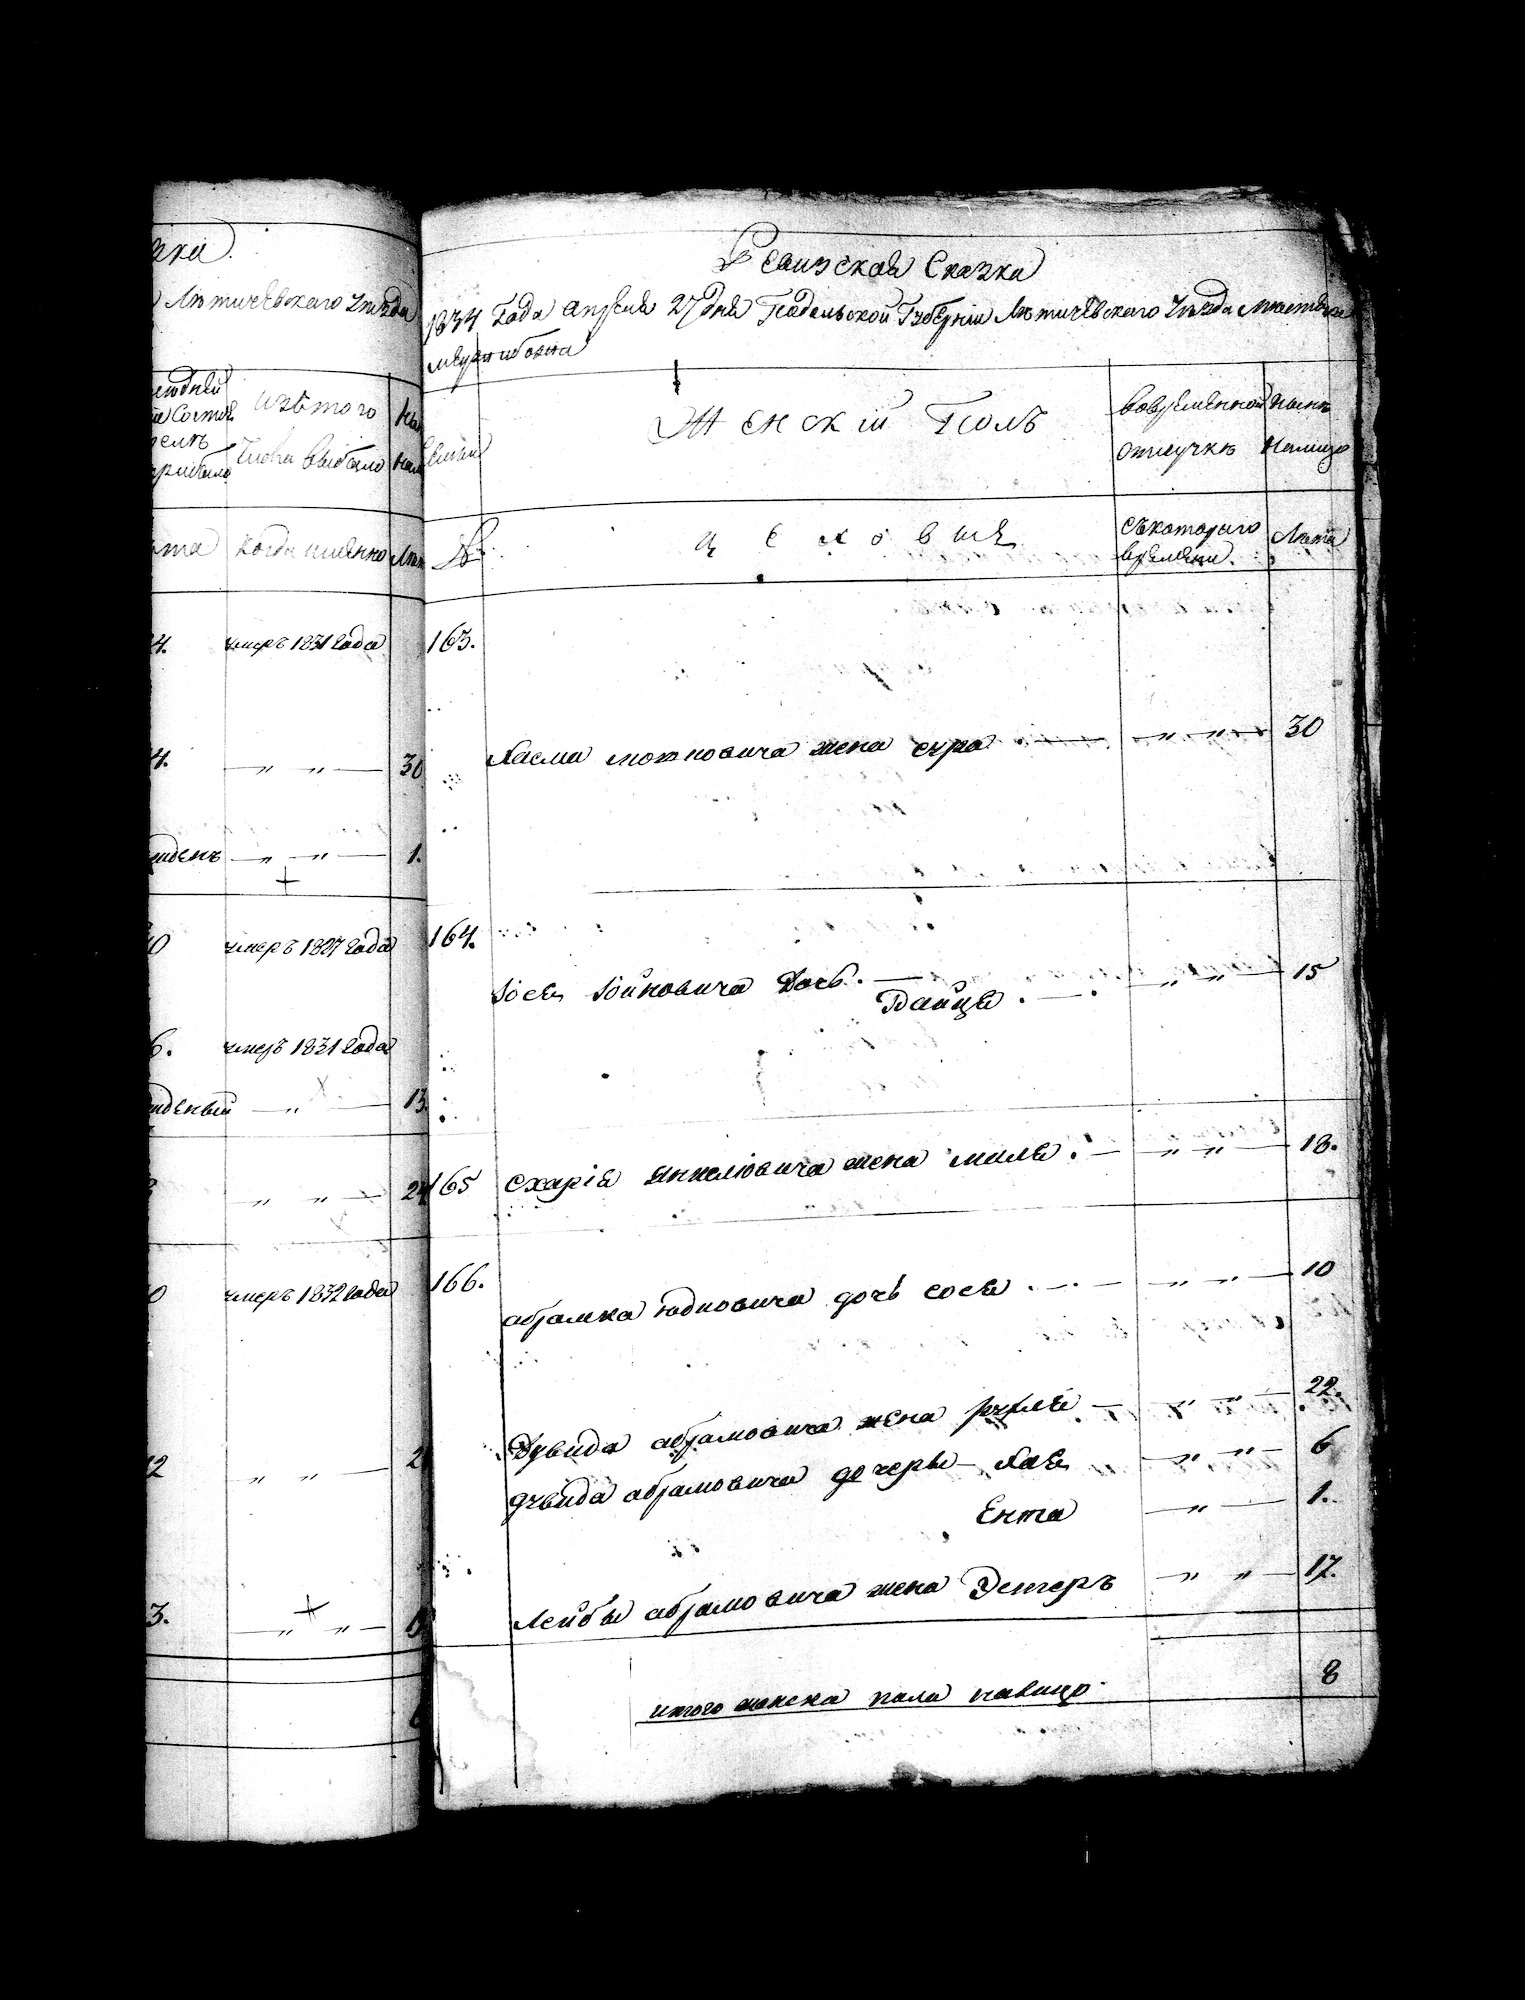 зка
Летичевскаго Уезда
изъ того
числа выбыло
когда именно
4. умеръ 1831 года
4. — „ „ — 30
жденъ — „ „ — 1.
умеръ 1827 года
6. умеръ 1831 года
жденый — „ — 13.
„ „ — 24
умеръ 1832 года
12 „ „ — 2
3. — „ „ —
Ревизская Сказка
1834 Года апреля 27 дня Подольской Губерніи Летичевскаго Уезда местечка
межибожа
Женскій Полъ
во временной
отлучке
ныне
налицо
№
цеховые
съ котораго
времени.
Лета
163.
Хасма мошковича жена сура — „ „ — 30
164.
Іося Іойновича дочь. — „ „ — 15
Байця
165 Схарія Янкелювича жена миля. — „ „ — 18.
166.
абрамка юдковича дочь сося — „ „ — 10
Дувида абрамовича жена рухля — „ „ — 22.
дувида абрамовича дочеры Хая — „ „ — 6
Ента — „ — 1.
Лейбы абрамовича жена Эстеръ „ „ — 17.
итого женска пола налицо 8